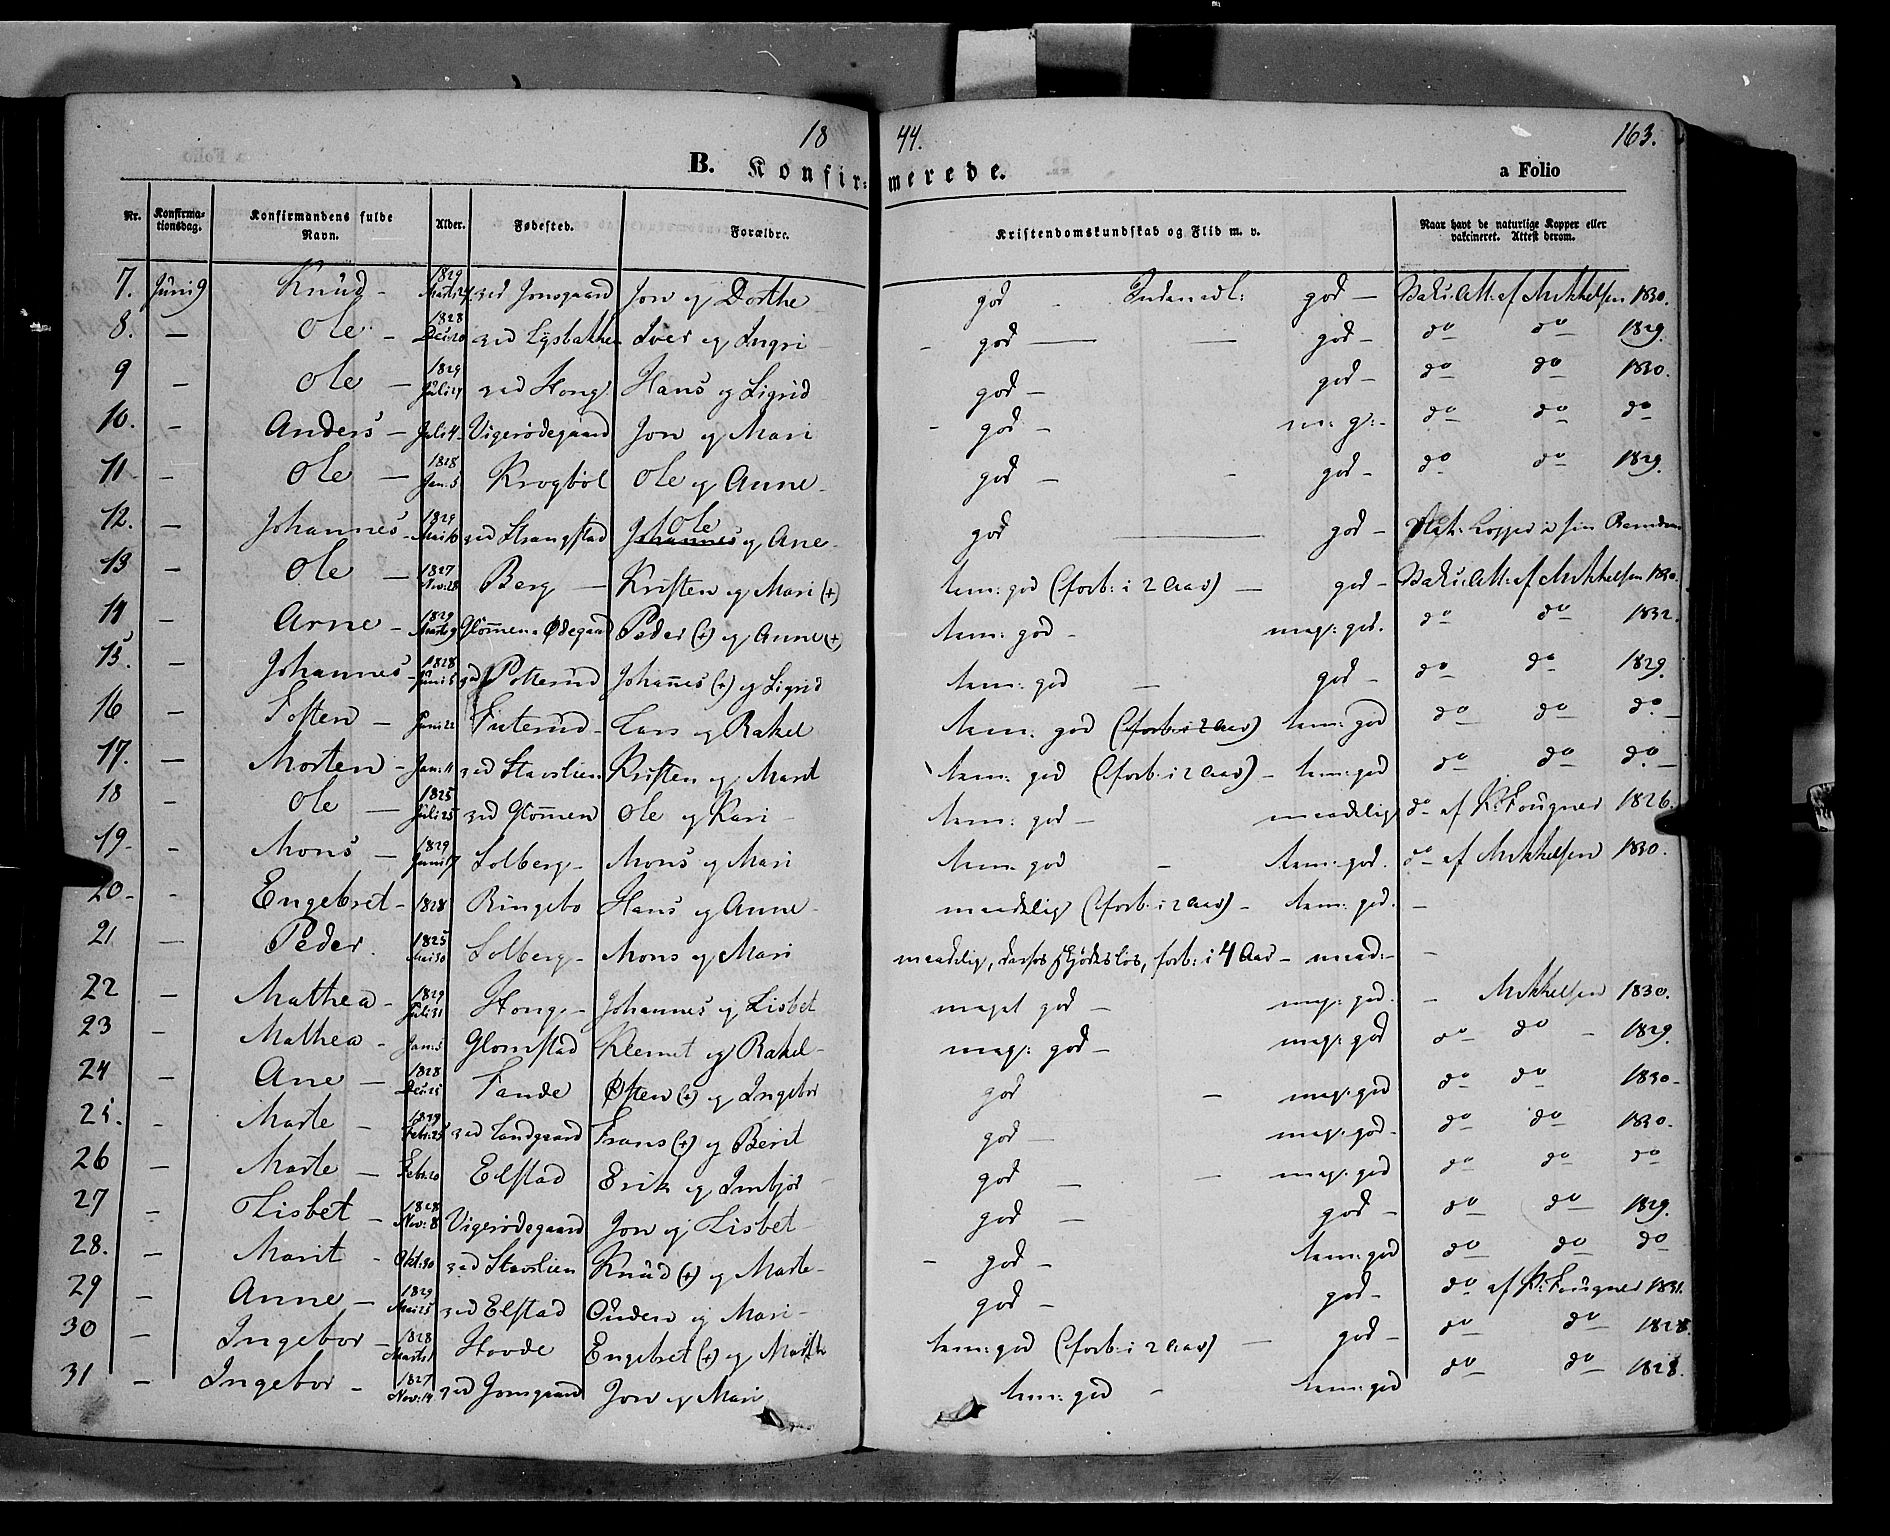 18 44. 163.
B. Konfirmerede. a Folio
Nr. Konfirmationsdag. Konfirmandens fulde Navn. Alder. Fødested. Forældre. Kristendomskundskab og Flid m. v. Naar havt de naturlige Kopper eller vakcineret. Attest derom.
7. Juni 9 Knud - 1829 Marts 24 ved Jonsgaard Jon og Dorthe god - god - Vaks: Att: af Mikkelsen 1830.
8. - Ole - 1828 Dec: 20 ved Lysbakken Iver og Ingri - god - - god - do do 1829.
9 - Ole - 1829 Juli 14 ved Hong Hans og Sigrid god - god - do do 1830.
10. - Anders - Juli 4 Vigerødegaard Jon og Mari - god - m: g: - do do do
11 - Ole - 1828 Jan: 5 Krogböl Ole og Anne - god - - god - do do 1829.
12. - Johannes - 1829 Mai 10 ved Strangstad Johannes Ole og Ane - god god - Nat: Kopper i sin Barndom
13 - Ole - 1827 Nov: 28 Berg - Kristen og Mari (+) tem: god (forb: i 2 Aar) - god - Vaks: Att: af Mikkelsen 1830.
14 - Arne - 1829 Marts 9 Glomen Ødegaard Peder (+) og Anne (+) tem: god - meg: god. do do 1832.
15. - Johannes - 1828 Juni 5 ved Potterud Johannes (+) og Sigrid tem: god - god - do do 1829.
16 - Tosten - Juni 22 Futerud - Lars og Rakel tem: god (forb: i 2 Aar) tem: god do do do -
17. - Morten - Jan: 11 ved Stavslien Kristen og Marit tem: god (forb: i 2 Aar) - tem: god do do do -
18 - Ole - 1825 Juli 25 ved Glomen Ole og Kari - tem: god - maadelig do af K: Fougner 1826.
19. - Mons - 1829 Juni 17 Solberg - Mons og Mari tem: god - tem: god. do af Mikkelsen 1830.
20. - Engebret - 1828 Ringebo Hans og Anne - maadelig (forb: i 2 Aar) - tem: god. -
21 - Peder. 1825 Mai 30 Solberg - Mons og Mari maadelig, derfos skjödeslös, forb: i 4 Aar - maad: - -
22 - Mathea - 1829 Juli 31 Hong - Johannes og Lisbet meget god - meg: god. - Mikkelsen 1830.
23 - Mathea - Jan: 5 Glomstad Klemet og Rakel - meg: god - meg: god do do - 1829.
24 - Ane - 1828 Dec: 25 Fande Østen (+) og Ingebor god - meg: god do do 1830 -
25. - Marte - 1829 Febr: 25 ved Landgaard Frans (+) og Berit god - meg: god - do do 1830.
26 - Marte - Febr: 20 Elstad Erik og Imbjør - god - - meg: god do do do
27 - Lisbet - 1828 Nov: 8 Vigerødegaard Jon og Lisbet - god - god - do do 1829.
28. - Marit - Okt: 30 ved Stavslien Knud (+) og Marte - - god - tem: god do do do
29 - Anne - 1829 Mai 25 ved Elstad Ouden og Mari - god - god - do af K: Fougner 1831.
30 - Ingebor - 1828 Marts 1 Hovde Engebret (+) og Marthe tem: god (forb: i 2 Aar) - god - do do 1828.
31 - Ingebor - 1827 Nov: 14 ved Jonsgaard Jon og Mari tem: god - tem: god do do 1828.